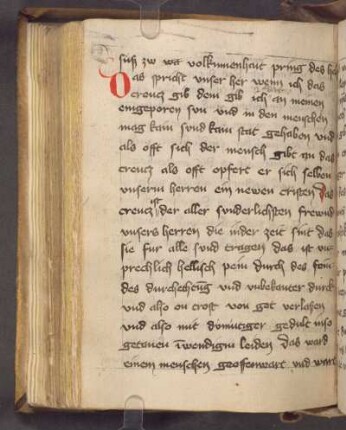 suß zw wa volkumenhait pring des h
Das spricht unser her wenn ich das
creucz gib dem gib ich an meinen
eingeporen sun und in den menschen
mag kain sund kain stat gehaben und
als offt sich der mensch gibt an das
creucz als offt opfert er sich selben
unserm herren ein newen cristen Das
creucz ist der aller sunderlichsten frewnd
unsers herren die in der zeit sint das
sie für alle sund tragen das ist un
prechlich hellisch pein durch des
des durchechens und unbekanter durch
und also on trost von got verlassen
und also mit demütiger gedult
getauen inwendigem leiden Das ward
einem menschen geoffenwart und ward